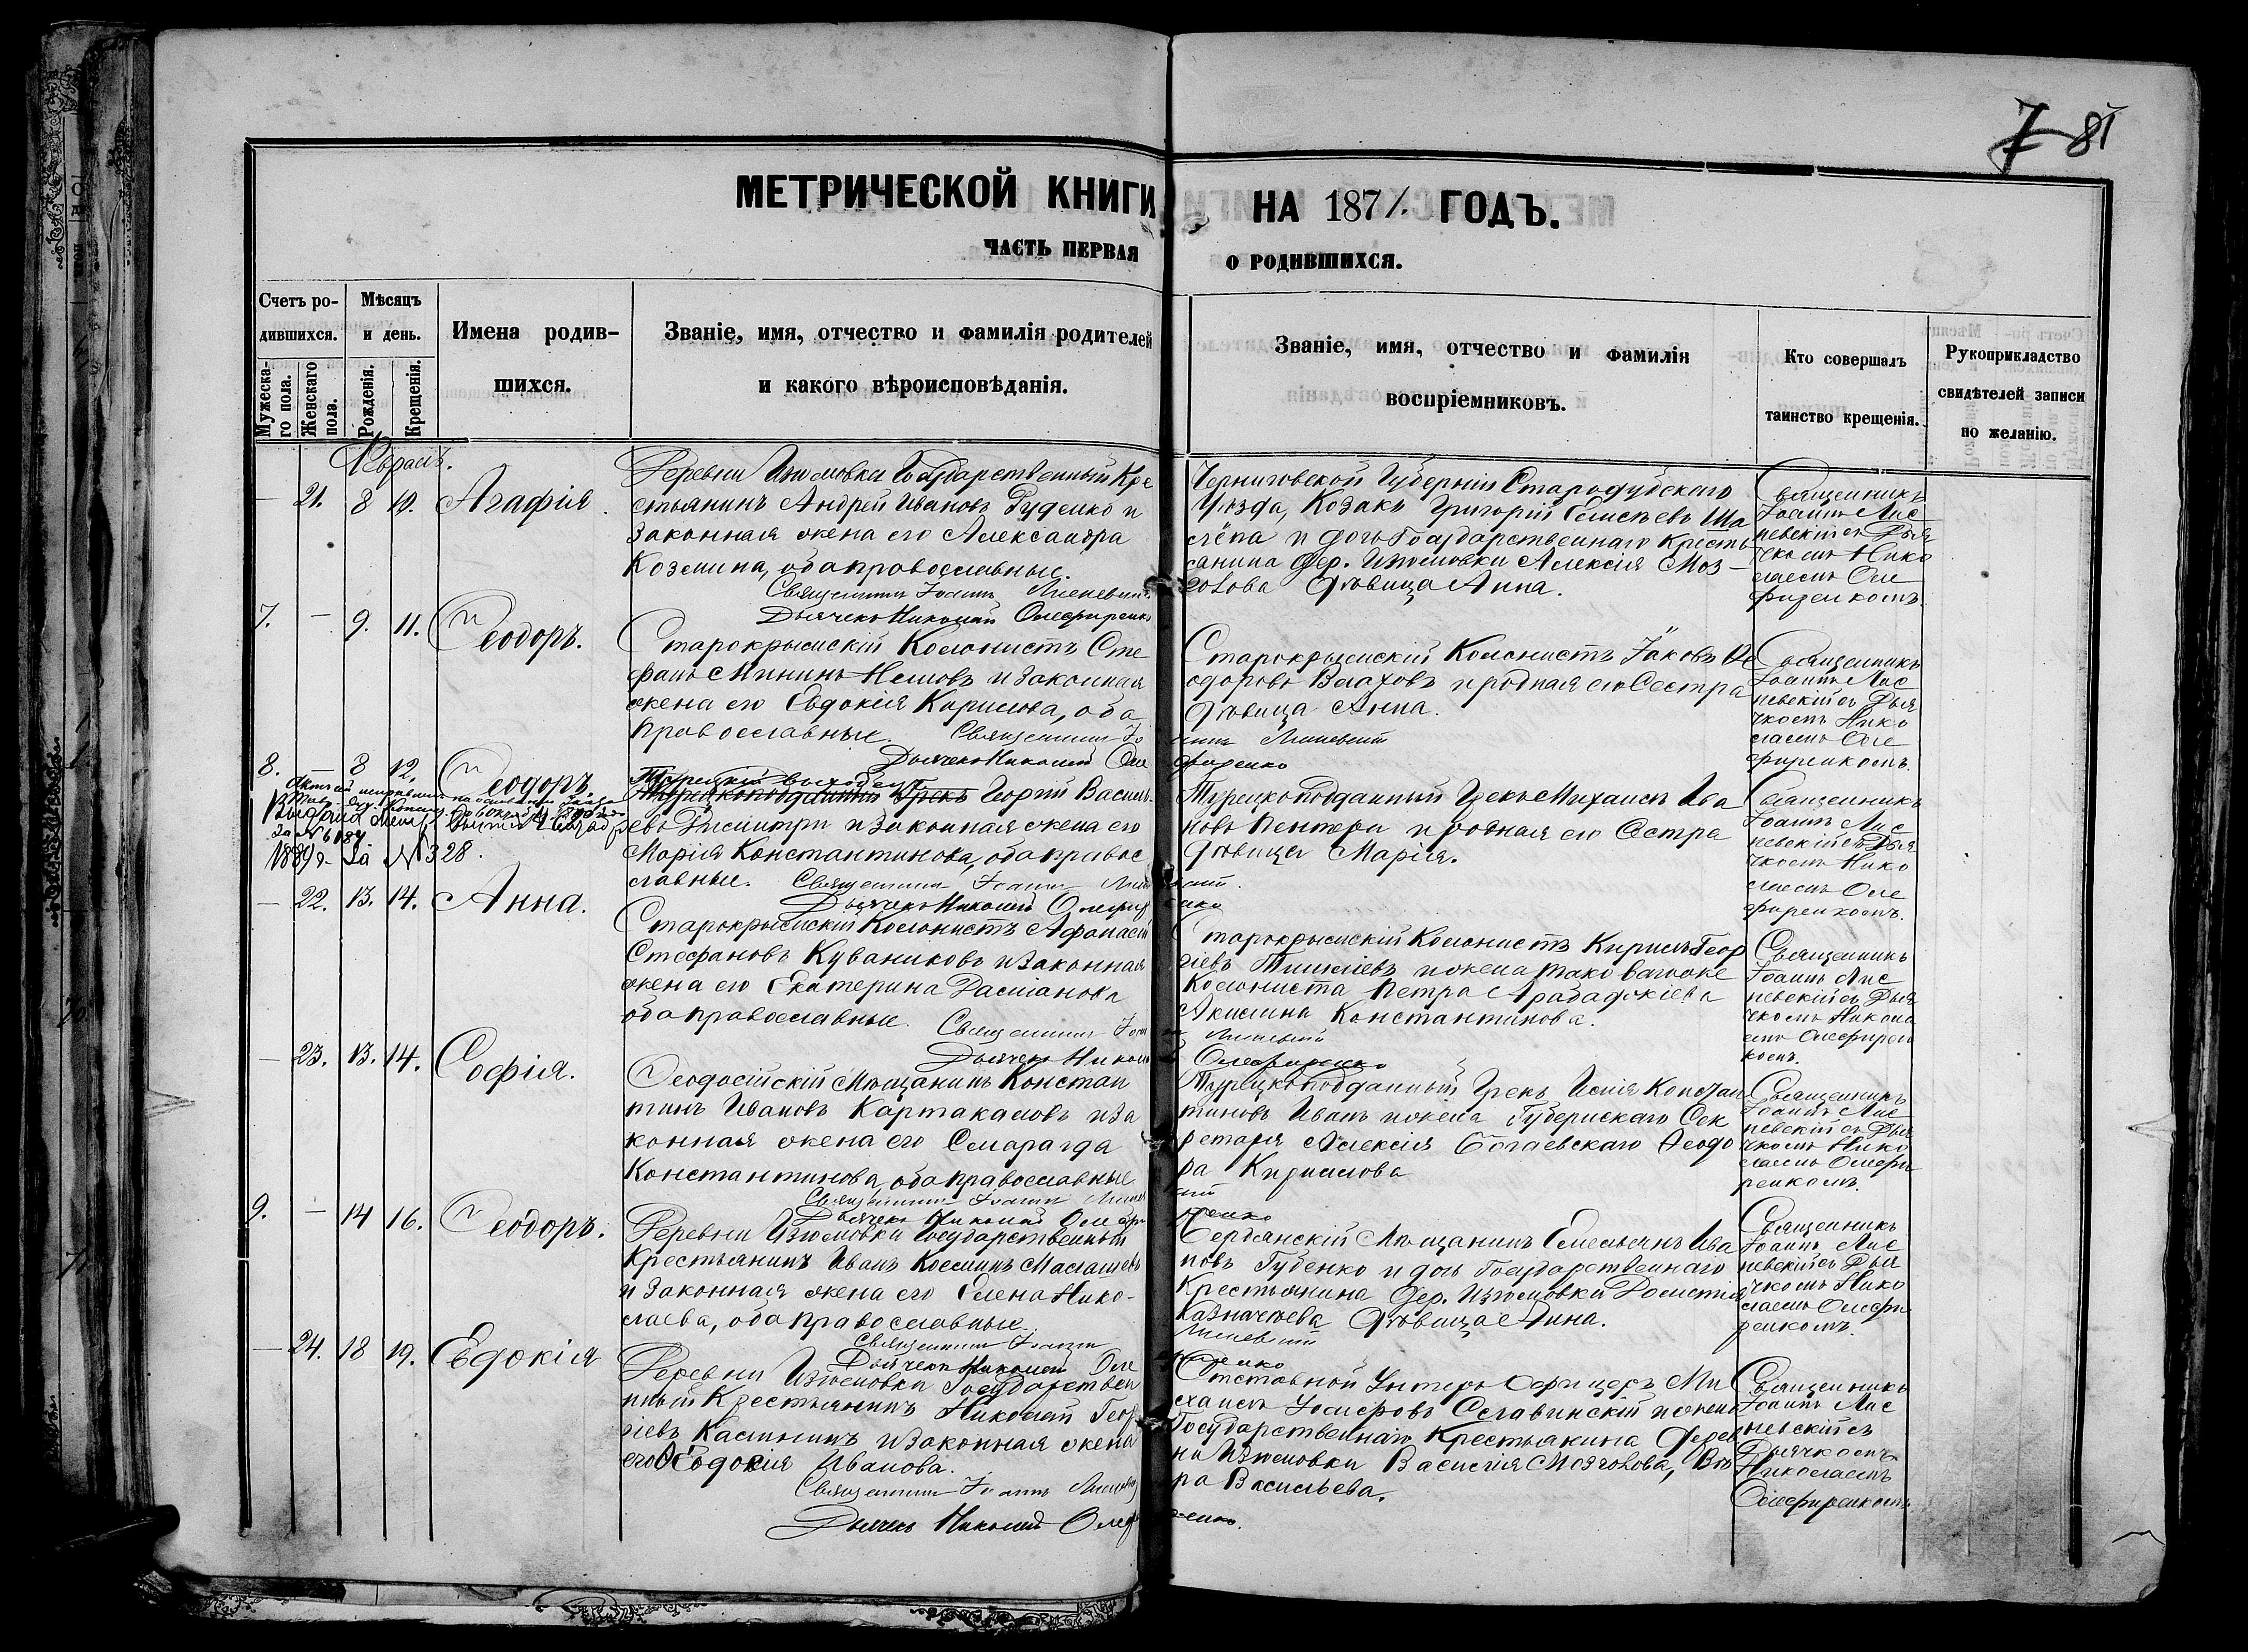 7 81
МЕТРИЧЕСКОЙ КНИГИ НА 1871. ГОДЪ.
ЧАСТЬ ПЕРВАЯ О РОДИВШИХСЯ.
Счетъ родившихся.
Мужескаго пола.
Женскаго пола.
Мѣсяцъ и день.
Рожденія.
Крещенія.
Имена родившихся.
Званіе, имя, отчество и фамилія родителей
и какого вѣроисповѣданія.
Званіе, имя, отчество и фамилія
воспріемниковъ.
Кто совершалъ
таинство крещенія.
Рукоприкладство
свидѣтелей записи
по желанію.
— 21. 8 10. Агафія.
Деревни Изюмовки Государственный Кре
стьянинъ Андрей Ивановъ Руденко и
законная жена его Александра
Козмина, оба православные.
Священникъ Іоаннъ
Дьячекъ Николай Олефиренко
Черниговской Губерніи Стародубскаго
Уѣзда, Козакъ Григорій
и дочь Государственнаго Кресть
янина дер. Изюмовки Алексія Моз-
говова дѣвица Анна.
Священникъ
Іоаннъ Лис
невскій съ Дья
чкомъ Нико
лаемъ Оле
фиренкомъ.
7. — 9. 11. Ѳеодоръ.
Старокрымскій Колонистъ Сте
фанъ Мининъ Немовъ и законная
жена его Евдокія Кирилова, оба
православные. Священникъ Іо
аннъ
Дьячекъ Николай Оле
фиренко
Старокрымскій Колонистъ Іаковъ Ѳе
одоровъ Влаховъ и родная его Сестра
дѣвица Анна.
Священникъ
Іоаннъ Лис
невскій съ Дья
чкомъ Нико
лаемъ Оле
фиренкомъ.
8. — 8 12. Ѳеодоръ.
1889 г. за № 328.
Турецкій выходецъ
Турецкоподданный Грекъ Георгій Василь-
евъ Димитри и законная жена его
Марія Константинова, оба правос
славные. Священникъ Іоаннъ
Дьячекъ Николай Олефиренко
Турецкоподданный Грекъ Михаилъ Ива
новъ Пентери и родная его Сестра
дѣвица Марія.
Священникъ
Іоаннъ Лис
невскій съ Дья
чкомъ Нико
лаемъ Оле
фиренкомъ.
— 22. 13. 14. Анна.
Старокрымскій Колонистъ Афанасій
Стефановъ Куваниковъ и законная
жена его Екатерина Дасманова
оба православные. Священникъ Іоаннъ
Дьячекъ Николай Олефиренко
Старокрымскій Колонистъ Кирилъ Геор
гіевъ и жена таковагоже
Колониста Петра
Акилина Константинова.
Священникъ
Іоаннъ Лис
невскій съ Дья
чкомъ Никола
емъ Олефирен
комъ.
— 23. 13. 14. Софія.
Ѳеодосійскій Мѣщанинъ Констан
тинъ Ивановъ Картакаловъ и за
конная жена его Смарагда
Константинова, оба православные
Священникъ Іоаннъ
Дьячекъ Николай Олефиренко
Турецкоподданный Грекъ Илія Констан
тиновъ Иванъ и жена Губернскаго Сек
ретаря Алексія Богаевскаго Ѳеодо
ра Кирилова
Священникъ
Іоаннъ Лис
невскій съ Дья
чкомъ Нико
лаемъ Олефи
ренкомъ.
9. — 14 16. Ѳеодоръ.
Деревни Изюмовки Государственный
Крестьянинъ Иванъ Козминъ Маслашевъ
и законная жена его Елена Нико-
лаева, оба православные.
Священникъ Іоаннъ
Дьячекъ Николай Олефиренко
Бердянскій Мѣщанинъ Емельянъ Ива
новъ Губенко и дочь Государственнаго
Крестьянина дер. Изюмовки
Казначѣева дѣвица Анна.
Священникъ
Іоаннъ Лис
невскій съ Дья
чкомъ Нико
лаемъ Олефи
ренкомъ.
— 24. 18 19. Евдокія
Деревни Изюмовки Государствен
ный Крестьянинъ Николай Геор
гіевъ Калининъ и законная жена
его Ѳеодосія Иванова.
Священникъ Іоаннъ
Дьячекъ Николай Олефиренко.
Отставной Унтеръ Офицеръ Ми
хаилъ Славинскій и жена
Государственнаго Крестьянина дерев
ни Изюмовки Василія Мозговова, Вѣ
ра Васильева.
Священникъ
Іоаннъ Лис
невскій съ
Дьячкомъ
Николаемъ
Олефиренкомъ.